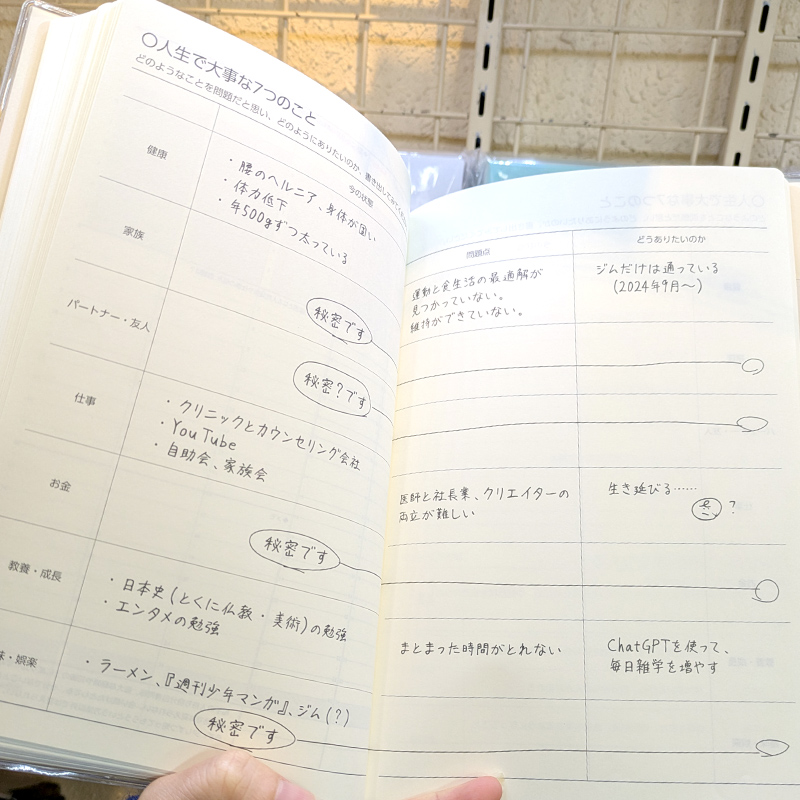 〇人生で大事な7つのこと
どのようなことを問題だと思い、どのようにありたいのか、書き出して
今の状態
健康
・腰のヘルニア、身体が固い
・体力低下
・年500gずつ太っている
家族
秘密です
パートナー・友人
秘密?です
仕事
・クリニックとカウンセリング会社
・YouTube
・自助会、家族会
お金
秘密です
教養・成長
・日本史(とくに仏教・美術)の勉強
・エンタメの勉強
味・娯楽
・ラーメン、『週刊少年マンガ』、ジム(?)
秘密です
問題点
どうありたいのか
運動と食生活の最適解が
見つかっていない。
維持ができていない。
ジムだけは通っている
(2024年9月〜)
医師と社長業、クリエイターの
両立が難しい
生き延びる……
?
まとまった時間がとれない
ChatGPTを使って、
毎日雑学を増やす